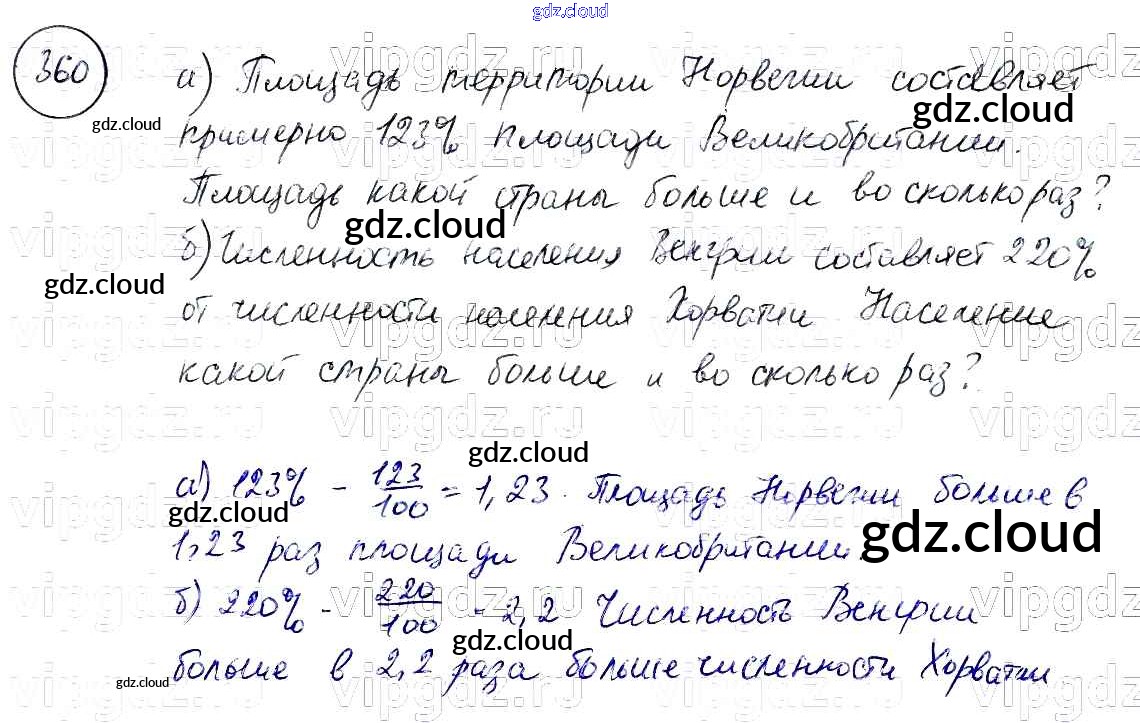 gdz.cloud
360
а) Площадь территории Норвегии составляет
примерно 123% площади Великобритании.
Площадь какой страны больше и во сколько раз?
б) Численность населения Венгрии составляет 220%
от численности населения Хорватии Население
какой страны больше и во сколько раз?
а) 123% - 123/100 = 1,23. Площадь Норвегии больше в
1,23 раз площади Великобритании
б) 220% - 220/100 - 2,2 Численность Венгрии
больше в 2,2 раза больше численности Хорватии
gdz.cloud
gdz.cloud
gdz.cloud
gdz.cloud
gdz.cloud
gdz.cloud
gdz.cloud
gdz.cloud
gdz.cloud
vipgdz.ru